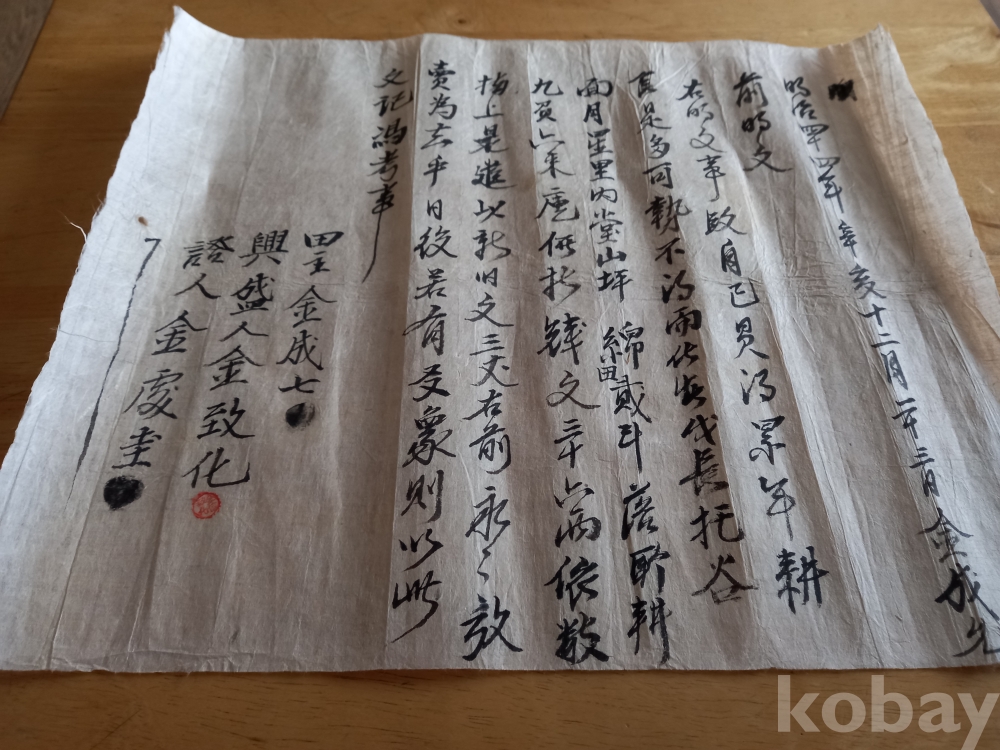 明治四十四年辛亥十二月二十三日金成允
前明文
右明文事段自己買得累年耕
食是多可勢不得而伏在伐長托谷
面月星里內堂山坪 綿田貳斗落所耕
九負六束庫㐣折錢文三十六兩依數
捧上是遣以新旧文三丈右前永〻放
賣為去乎日後若有爻象則以此
文記憑考事
田主金成七
興盛人金致化
證人金處圭
kobay